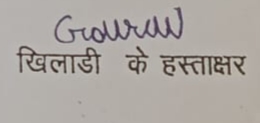 Gaurav
खिलाडी के हस्ताक्षर